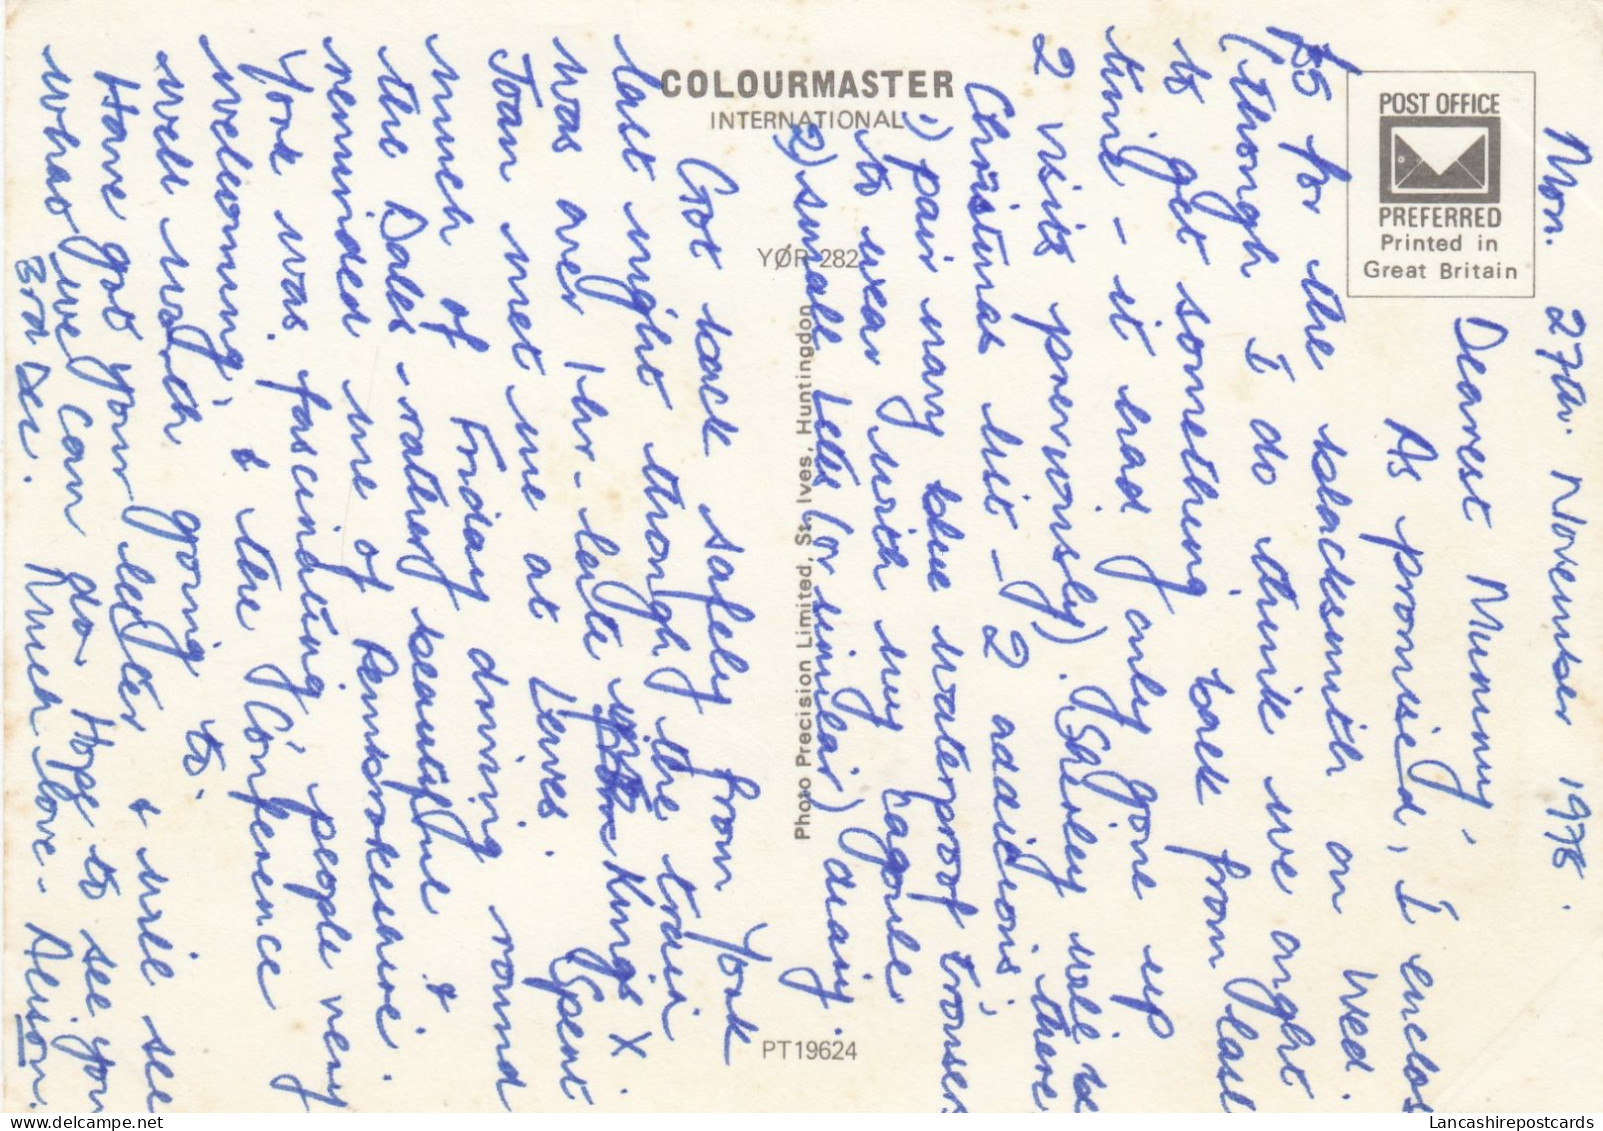 COLOURMASTER
INTERNATIONAL
POST OFFICE
PREFERRED
Printed in
Great Britain
YØR 282
Photo Precision Limited, St. Ives, Huntingdon
PT19624
Mon. 27th. November 1978.
Dearest Mummy,
As promised, I enclose
£5 for the blacksmith on Wed.
(though I do think we ought
to get something back from last
time - it had only gone up
2 visits previously). Shirley will be there
Christmas list - 2 additions,
1) pair navy blue waterproof trousers
to wear with my cagoule
2) small Letts (or similar) diary.
Got back safely from York
last night though the train
was over 1 hr. late into Kings X
Joan met me at Lewes. Spent
much of Friday driving round
the Dales rather beautiful &
reminded me of Pembrokeshire.
York was fascinating, people very
welcoming & the Conference
well worth going to.
Have got your letter & will see
what we can do. Hope to see you
3rd Dec. Much love - Alison.
Lancashirepostcards